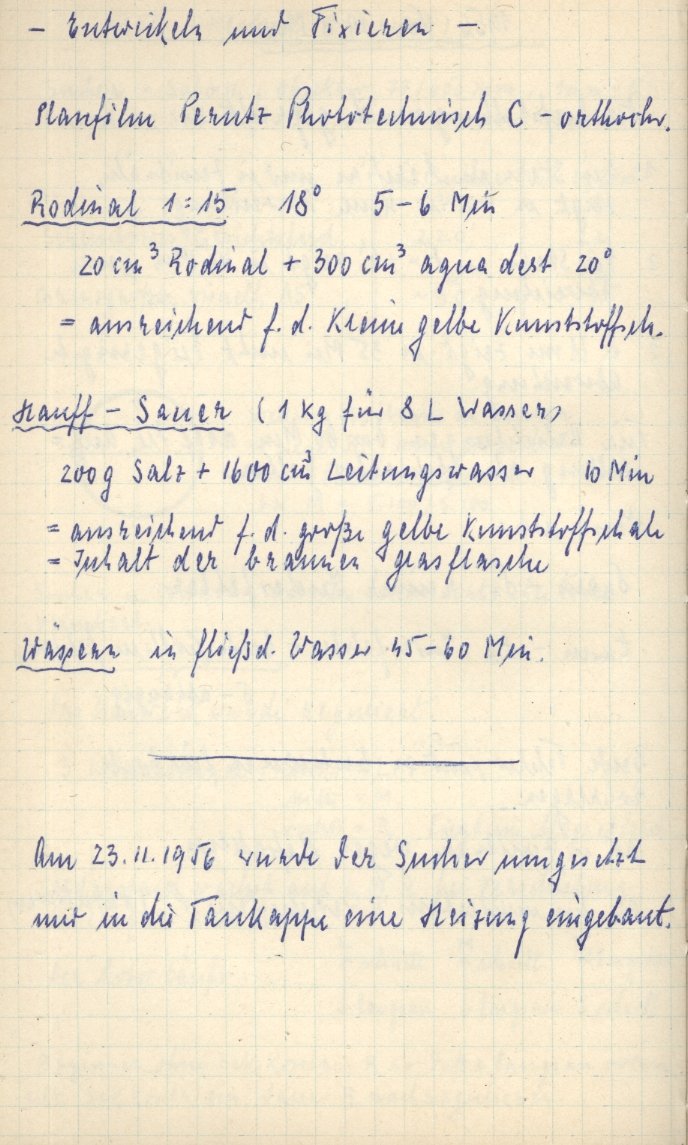 - Entwickeln und Fixieren -
Planfilm Perutz Phototechnisch C - orthochr.
Rodinal 1:15 18° 5-6 Min
20 cm³ Rodinal + 300 cm³ aqua dest 20°
= ausreichend f. d. kleine gelbe Kunststoffsch.
Hauff - Sauer (1 kg für 8 L Wasser)
200 g Salz + 1600 cm³ Leitungswasser 10 Min
= ausreichend f. d. große gelbe Kunststoffschale
= Inhalt der braunen Glasflasche
Wässern in fließd. Wasser 45-60 Min.
Am 23.11.1956 wurde der Sucher umgesetzt
und in die Taukappe eine Heizung eingebaut.